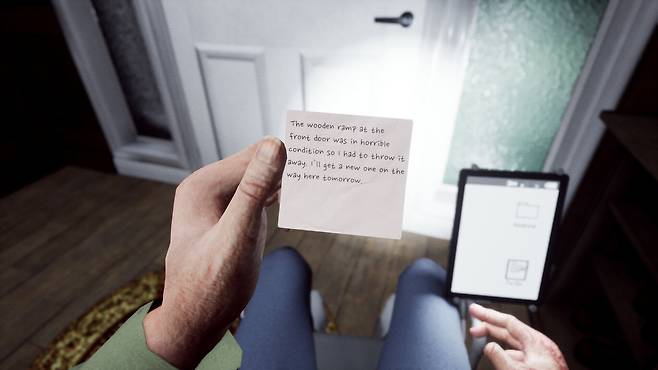 The wooden ramp at the
front door was in horrible
condition so I had to throw it
away. I'll get a new one on the
way here tomorrow.